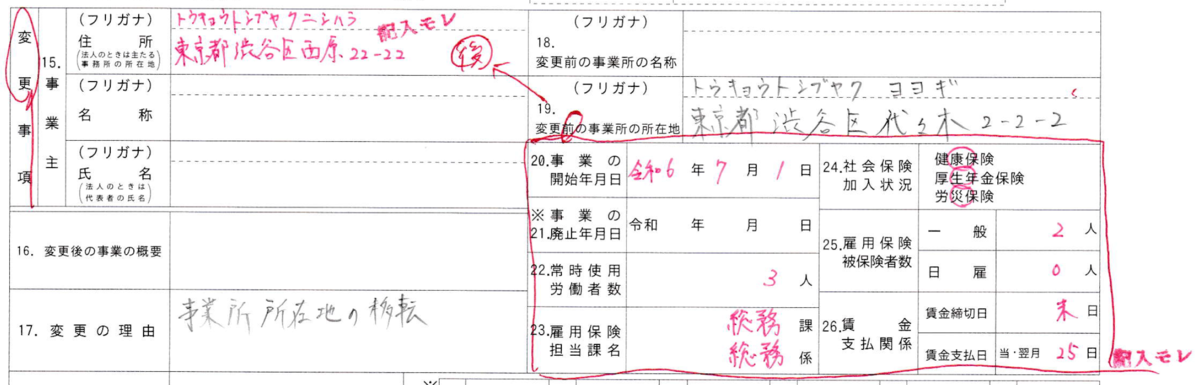 変更事項
15.事業主
(フリガナ) トウキョウトシブヤクニシハラ
住所 東京都渋谷区西原22-22 記入モレ
(法人のときは主たる事務所の所在地)
(フリガナ)
名称
(フリガナ)
氏名
(法人のときは代表者の氏名)
16. 変更後の事業の概要
17. 変更の理由 事業所所在地の移転
(フリガナ)
18. 変更前の事業所の名称
後
(フリガナ) トウキョウトシブヤク ヨヨギ
19. 変更前の事業所の所在地 東京都渋谷区代々木2-2-2
20.事業の開始年月日 令和6年7月1日
※21.事業の廃止年月日 令和 年 月 日
22.常時使用労働者数 3人
23.雇用保険担当課名 総務課
総務係
24.社会保険加入状況 健康保険
厚生年金保険
労災保険
25.雇用保険被保険者数 一般 2人
日雇 0人
26.賃金支払関係 賃金締切日 末日
賃金支払日 当・翌月25日
記入モレ
※